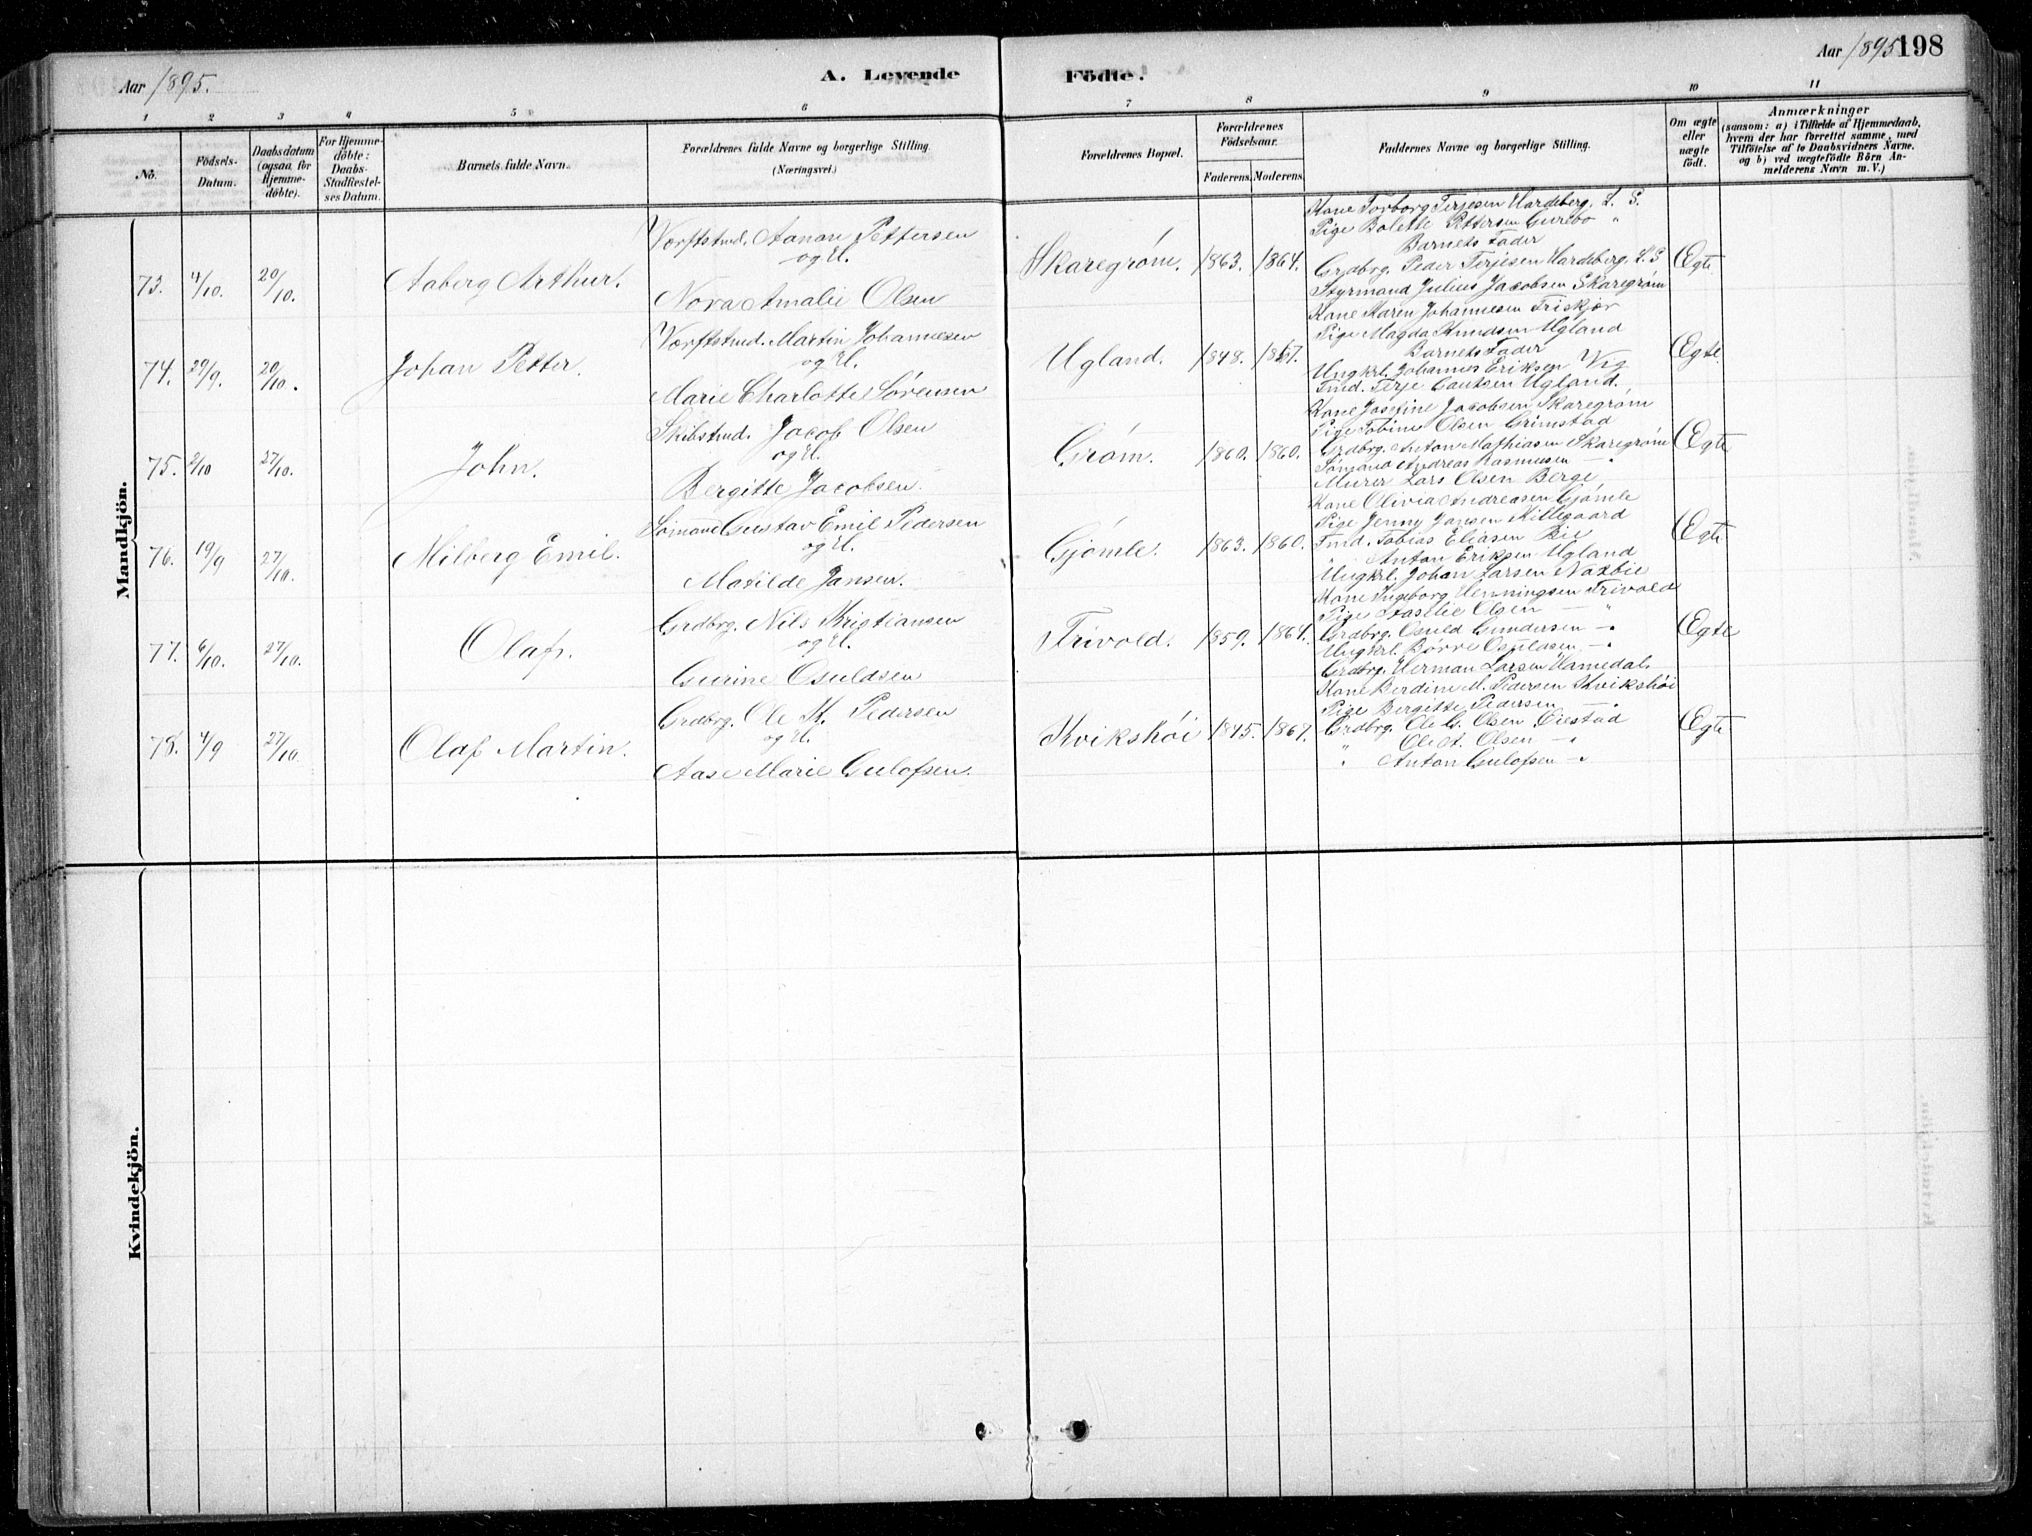 Aar 1895.
A. Levende
Födte.
Aar 1895
198
1 2 3 4 5 6 7 8 9 10 11
No.
Födsels-
Datum.
Daabsdatum
(ogsaa for
Hjemme-
döbte).
For Hjemme-
döbte:
Daabs-
Stadfæstel-
ses Datum.
Barnets fulde Navn.
Forældrenes fulde Navne og borgerlige Stilling.
(Næringsvei.)
Forældrenes Bopæl.
Forældrenes
Födselsaar.
Faderens. Moderens.
Faddernes Navne og borgerlige Stilling.
Om ægte
eller
uægte
födt.
Anmærkninger
(saasom: a) i Tilfælde af Hjemmedaab,
hvem der har forrettet samme, med
Tilföielse af to Daabsvidners Navne,
og b) ved uægtefödte Börn An-
melderens Navn m. V.)
Mandkjön.
73. 4/10. 20/10. Aaberg Arthur.
Værftstmd. Aanan Pettersen
og H.
Nora Amalie Olsen
Skaregrøm. 1863. 1864.
Kone Torborg Terjesen Hardeberg, L. S.
Pige Bolette Pettersen Gurebo "
Barnets Fader
Grdbrg. Peder Terjesen Hardeberg, L. S
Styrmand Julius Jacobsen Skaregrøm
Ægte
74. 29/9. 20/10. Johan Petter.
Værftstmd. Martin Johannesen
og H.
Marie Charlotte Sørensen
Ugland. 1848. 1857.
Kone Karen Johannesen Friskjær
Pige Magda Knudsen Ugland
Barnets Fader
Ungkrl. Johannes Eriksen Vig
Tmd. Terje Ugland.
Ægte
75. 2/10 27/10. John.
Skibstmd. Jacob Olsen
og H.
Bergitte Jacobsen.
Grøm. 1860. 1860.
Kone Josefine Jacobsen Skaregrøm
Pige Tobine Olsen Grimstad
Grdbrg. Anton Mathiasen Skaregrøm
Sømand Andreas Rasmusen — "
Murer Lars Olsen Berge
Ægte
76. 19/9 27/10. Milberg Emil.
Sømand Gustav Emil Pedersen
og H.
Matilde Jansen.
Gjømle. 1863. 1860.
Kone Olivia Andreasen Gjømle
Pige Jenny Jansen Killegaard
Tmd. Tobias Eliasen Bie
" Anton Eriksen Ugland
Ungkrl. Johan Larsen Naxbie
Ægte
77. 6/10. 27/10. Olaf.
Grdbrg. Nils Kristiansen
og H.
Gurine Osuldsen
Trivold. 1859. 1864.
Kone Ingeborg Henningsen Trivold
Pige Olsen — "
Grdbrg. Osuld Gundersen — "
Ungkrl. Børre Osuldsen — "
Grdbrg. Herman Larsen Hamedal.
Ægte
78. 4/9 27/10. Olaf Martin.
Grdbrg. Ole K. Pedersen
og H.
Aase Marie Gulofsen.
Kvikshøi 1845. 1867.
Kone Berdine M. Pedersen Kvikshøi
Pige Bergitte Pedersen — "
Grdbrg. Ole G. Olsen Øiestad
" Ole A. Olsen — "
" Anton Gulofsen — "
Ægte
Kvindekjön.